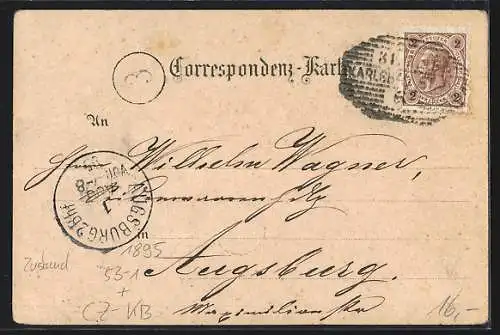 3
Correspondenz-Karte
2 2
31
KARLSB
2 2
An
Herrn Wilhelm Wagner,
AUGSBURG 2 BHF
in
Zustand
1895
Augsburg.
53-1
+
CZ-KB
Maximilianstr
16,-